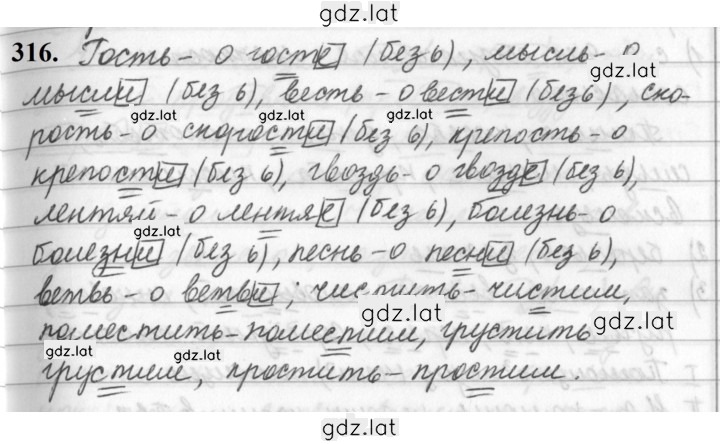 gdz.lat
316. Гость - о госте (без ь), мысль - о
gdz.lat
мысли (без ь), весть - о вести (без ь), ско-
gdz.lat gdz.lat
рость - о скорости (без ь), крепость - о
крепости (без ь), гвоздь - о гвозде (без ь),
лентяй - о лентяе (без ь), болезнь - о
gdz.lat
болезни (без ь), песнь - о песни (без ь),
ветвь - о ветви; чистить - чистим,
gdz.lat gdz.lat
поместить - поместим, грустить
gdz.lat gdz.lat
грустим, простить - простим.
gdz.lat